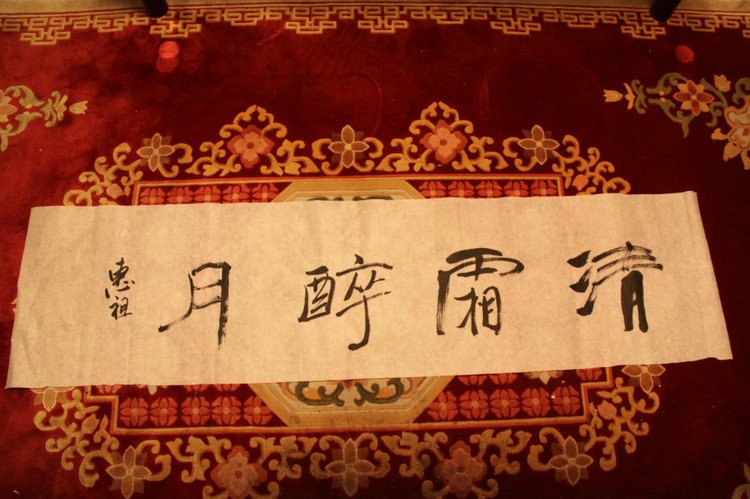 清霜醉月
惠祖